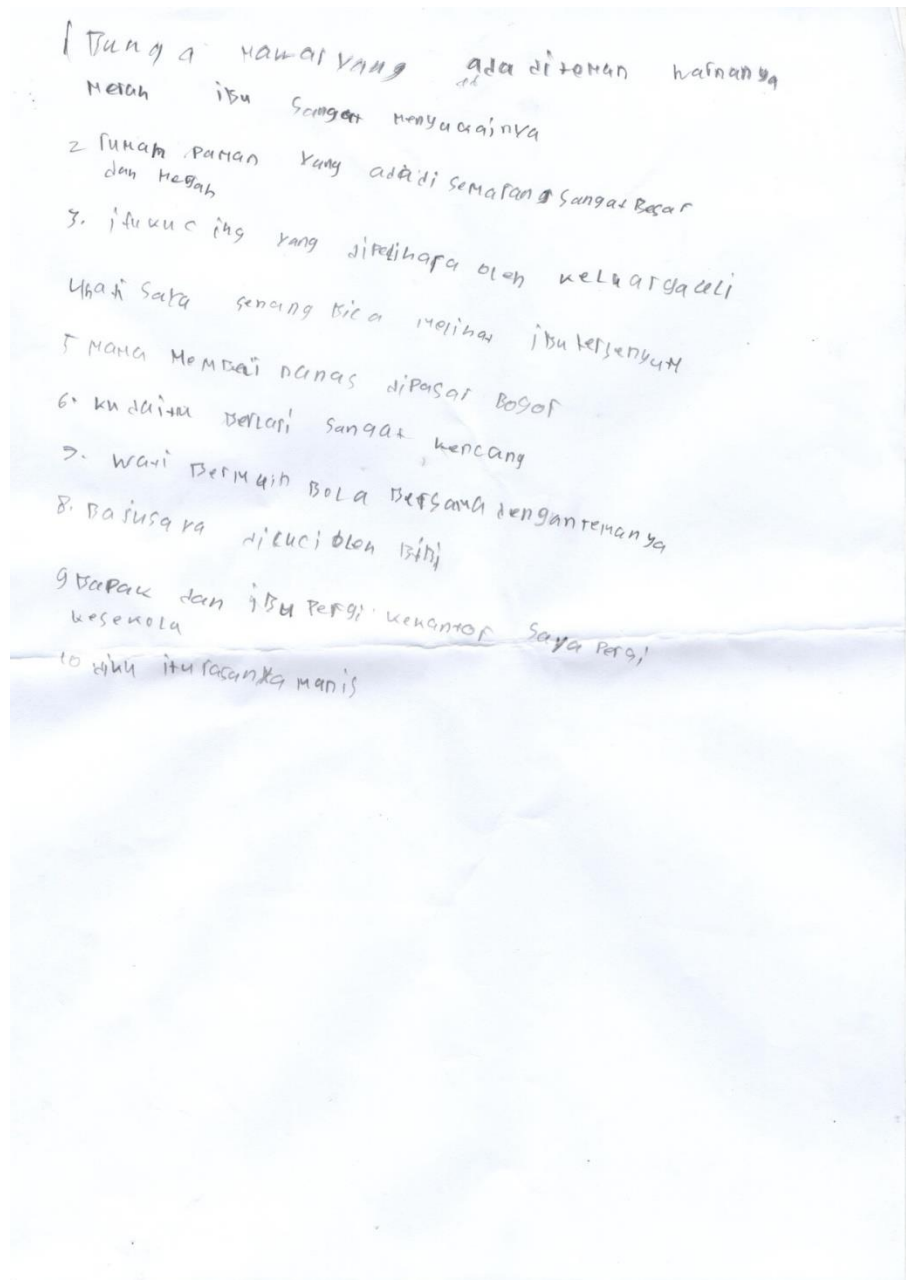 1 Bunga Mawar yang ada di teman warnanya
Merah iBu Sangat Menyukainya
2 rumah paman yang ada di semarang sangat Besar
dan Megah
3. itu kucing yang dipelihara oleh keluarga
4 hati saya senang Bica melihat iBu tersenyum
5 MaMa MemBei nanas dipasar Bogor
6. kuda itu Berlari sangat kencang
7. wati Bermain Bola Bersama dengan temanya
8. Bajusaya dicuci oleh BiBi
9 Bapak dan iBu Pergi kekantor saya Pergi
kesekola
10 itu rasanya manis